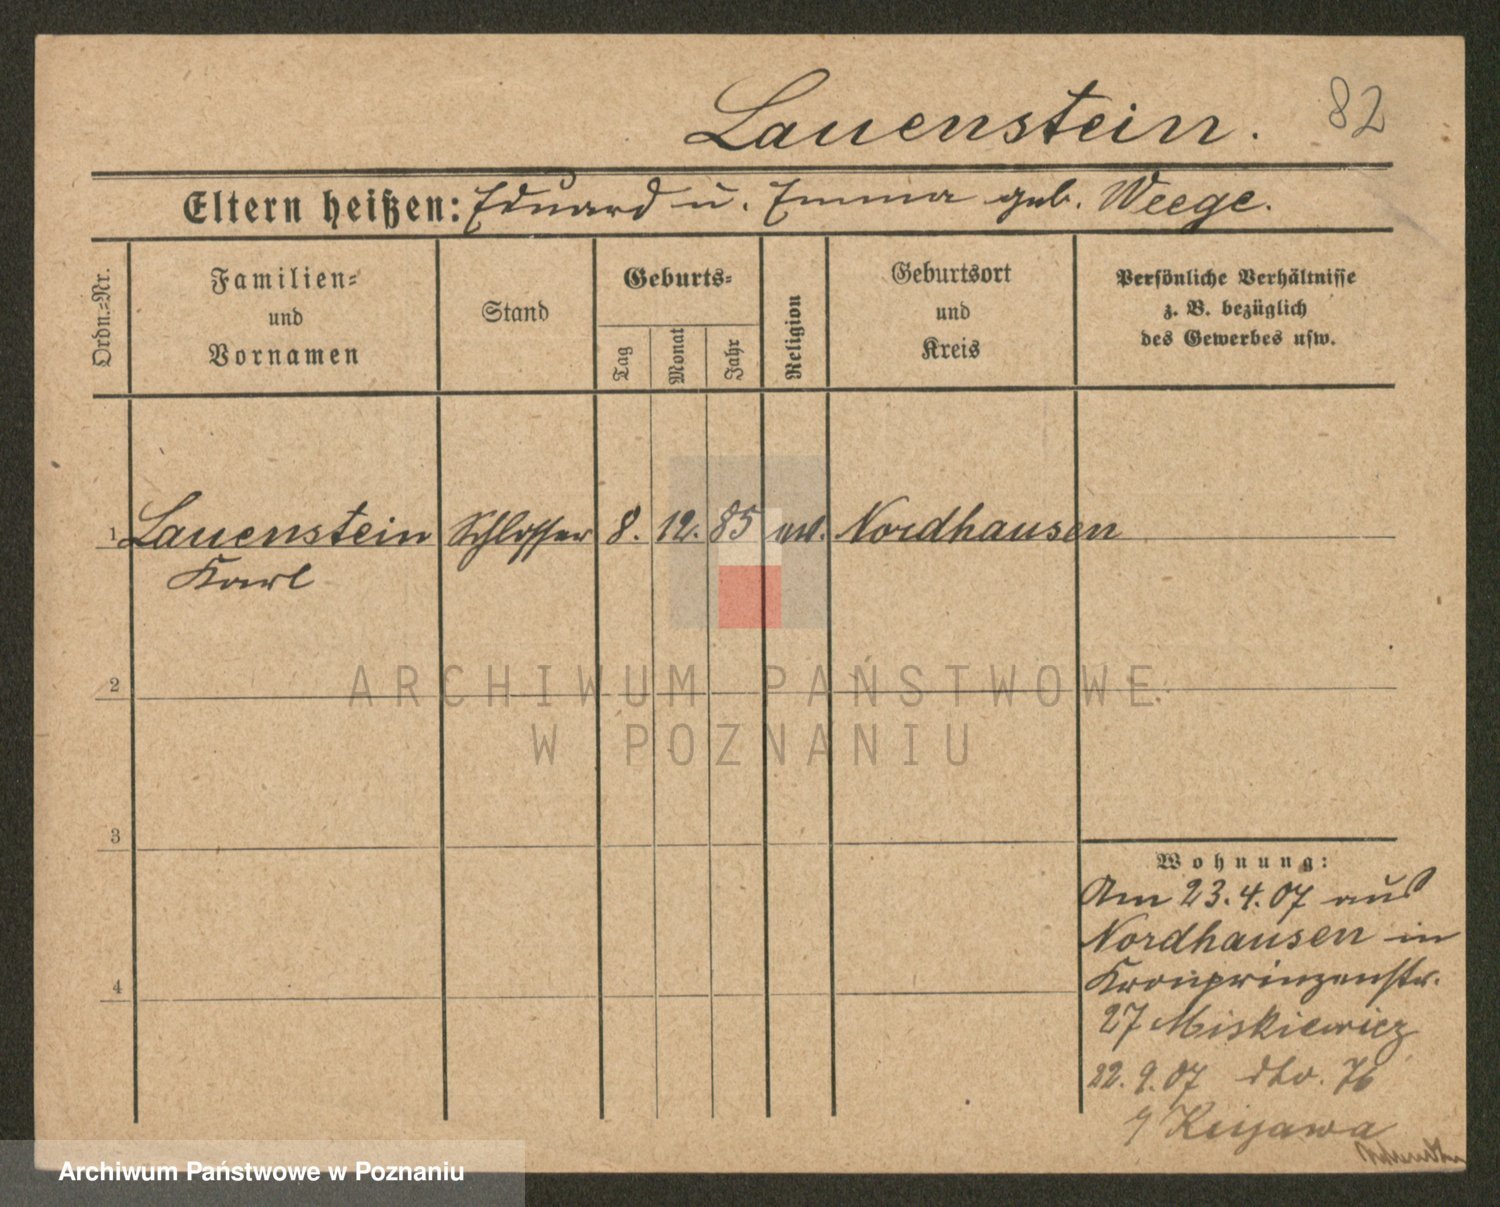 Lauenstein. 82
Eltern heißen: Eduard u. Emma geb. Weege.
Ordn.=Nr.
Familien=
und
Vornamen
Stand
Geburts=
Tag
Monat
Jahr
Religion
Geburtsort
und
Kreis
Persönliche Verhältnisse
z. B. bezüglich
des Gewerbes usw.
1 Lauenstein Schlosser 8. 12. 85 Nordhausen
Karl
2
3
4
Wohnung:
Am 23.4.07 aus
Nordhausen in
Kronprinzenstr.
27 Miskiewicz
22.9.07 dto. 76
Kujawa
ARCHIWUM PAŃSTWOWE
W POZNANIU
Archiwum Państwowe w Poznaniu